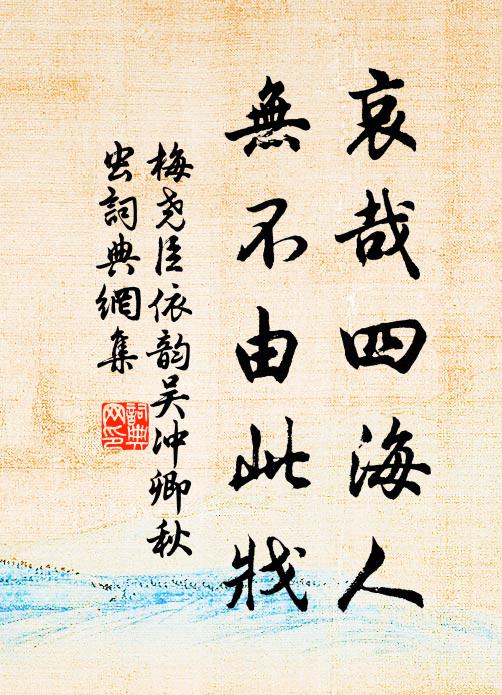 哀哉四海人
無不由此戕
梅尧臣依韵吴冲卿秋
虫詞典網集
詞典
网印